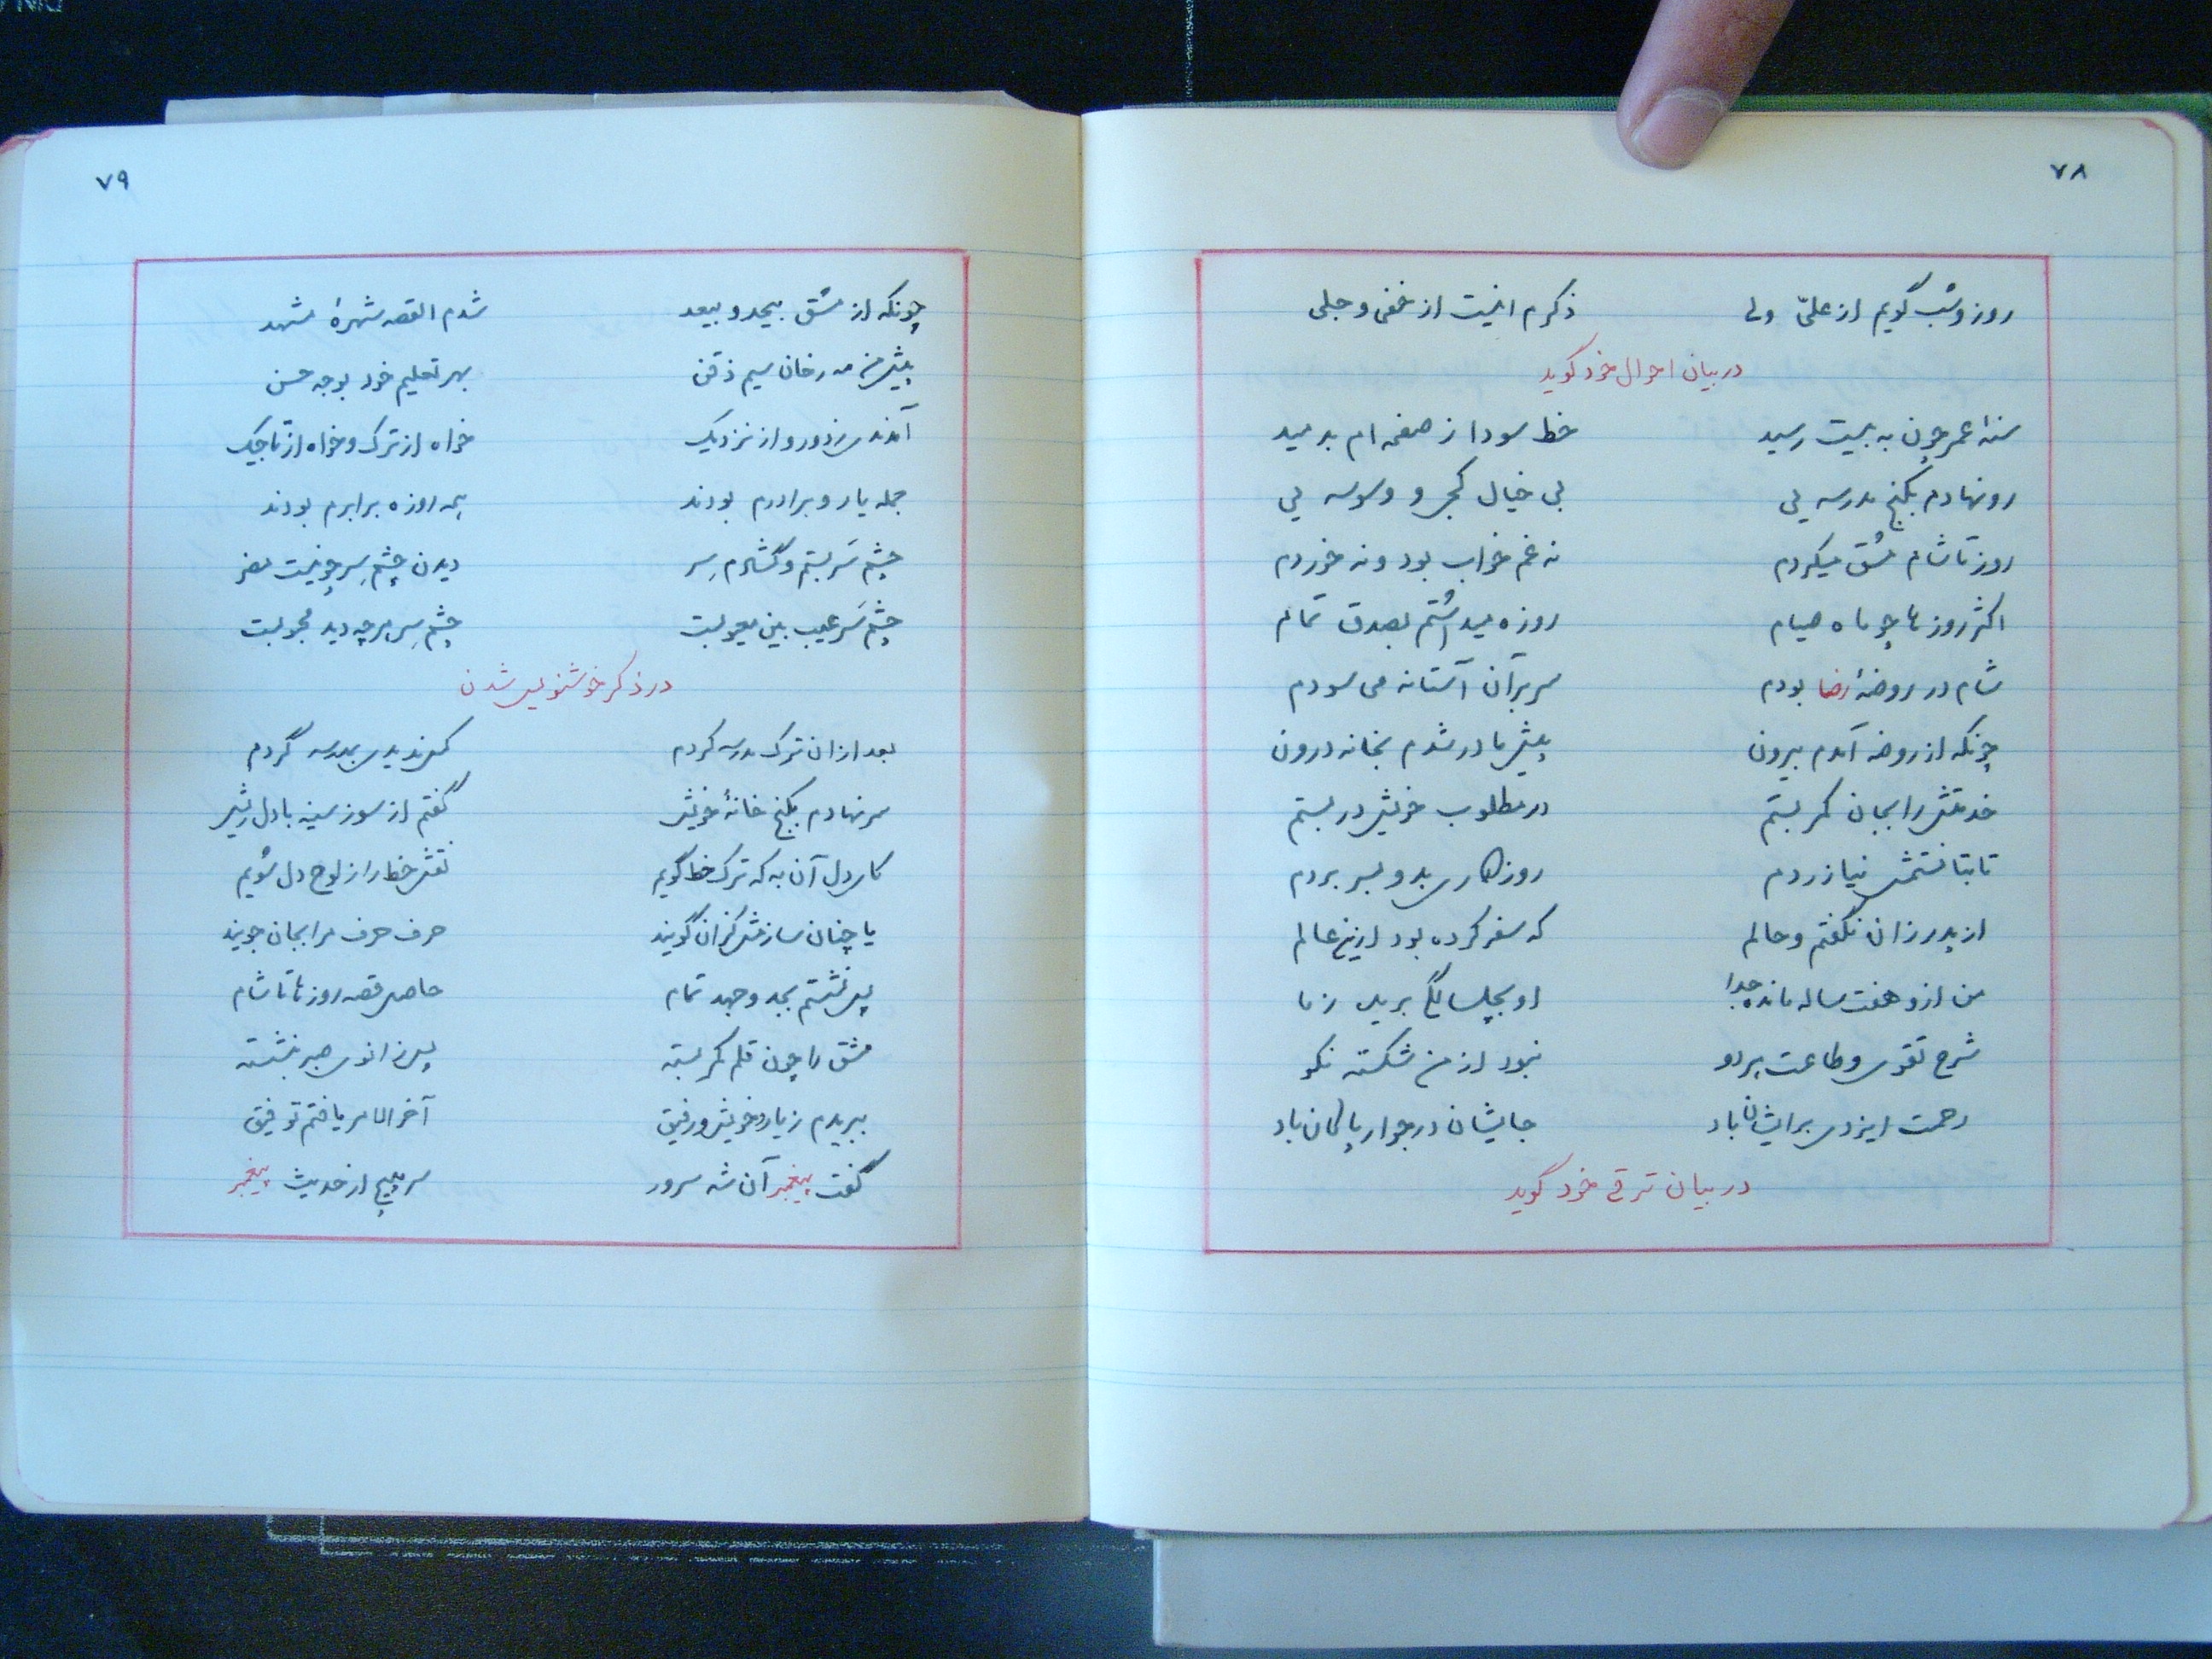 ۷۸
روز و شب گویم از علیّ ولی ذکرم اینست از خفی و جلی
در بیان احوال خود گوید
سنهٔ عمر چون به بیست رسید خط سودا ز صفحه ام بدمید
رو نهادم بکنج مدرسه یی بی خیال کج و وسوسه یی
روز تا شام مشق میکردم نه غم خواب بود و نه خوردم
اکثر روزها چو ماه صیام روزه میداشتم بصدق تمام
شام در روضهٔ رضا بودم سر بر آن آستانه می سودم
چونکه از روضه آمدم بیرون پیش مادر شدم بخانه درون
خدمتش را بجان کمر بستم در مطلوب خویش در بستم
تا بتانستمش نیازردم روزگاری بدو بسر بردم
از پدر زان نگفتم و حالم که سفر کرده بود ازین عالم
من ازو هفت ساله مانده جدا او بچلسالگی برید ز ما
شرح تقوی و طاعت هر دو نبود از من شکسته نکو
رحمت ایزدی برایشان باد جایشان در جوار پاکان باد
در بیان ترقی خود گوید
۷۹
چونکه از مشق بیحد و بیعد شدم القصه شهرهٔ مشهد
پیش من مه رخان سیم ذقن بهر تعلیم خود بوجه حسن
آمدندی ز دور و از نزدیک خواه از ترک و خواه از تاجیک
جمله یار و برادرم بودند همه روزه برابرم بودند
چشم سَر بستم و گشادم سِر دیدن چشم سِر چو نیست مضر
چشم سَر عیب بین معیوبست چشم سِر هر چه دید محبوبست
در ذکر خوشنویس شدن
بعد از ان ترک مدرسه کردم کم زدیدی بمدرسه گردم
سر نهادم بکنج خانهٔ خویش گفتم از سوز سینه با دل ریش
کای دل آن به که ترک خط گویم نقش خط را ز لوح دل شویم
یا چنان سازمش کزان گویند حرف حرف مرا بجان جویند
پس نشستم بجد و جهد تمام حاصل قصه روزها تا شام
مشق را چون قلم کمر بسته پس زانوی صبر بنشسته
ببریدم ز یار و خویش و رفیق آخر الامر یافتم توفیق
گفت پیغمبر آن شه سرور سر مپیچ از حدیث پیغمبر